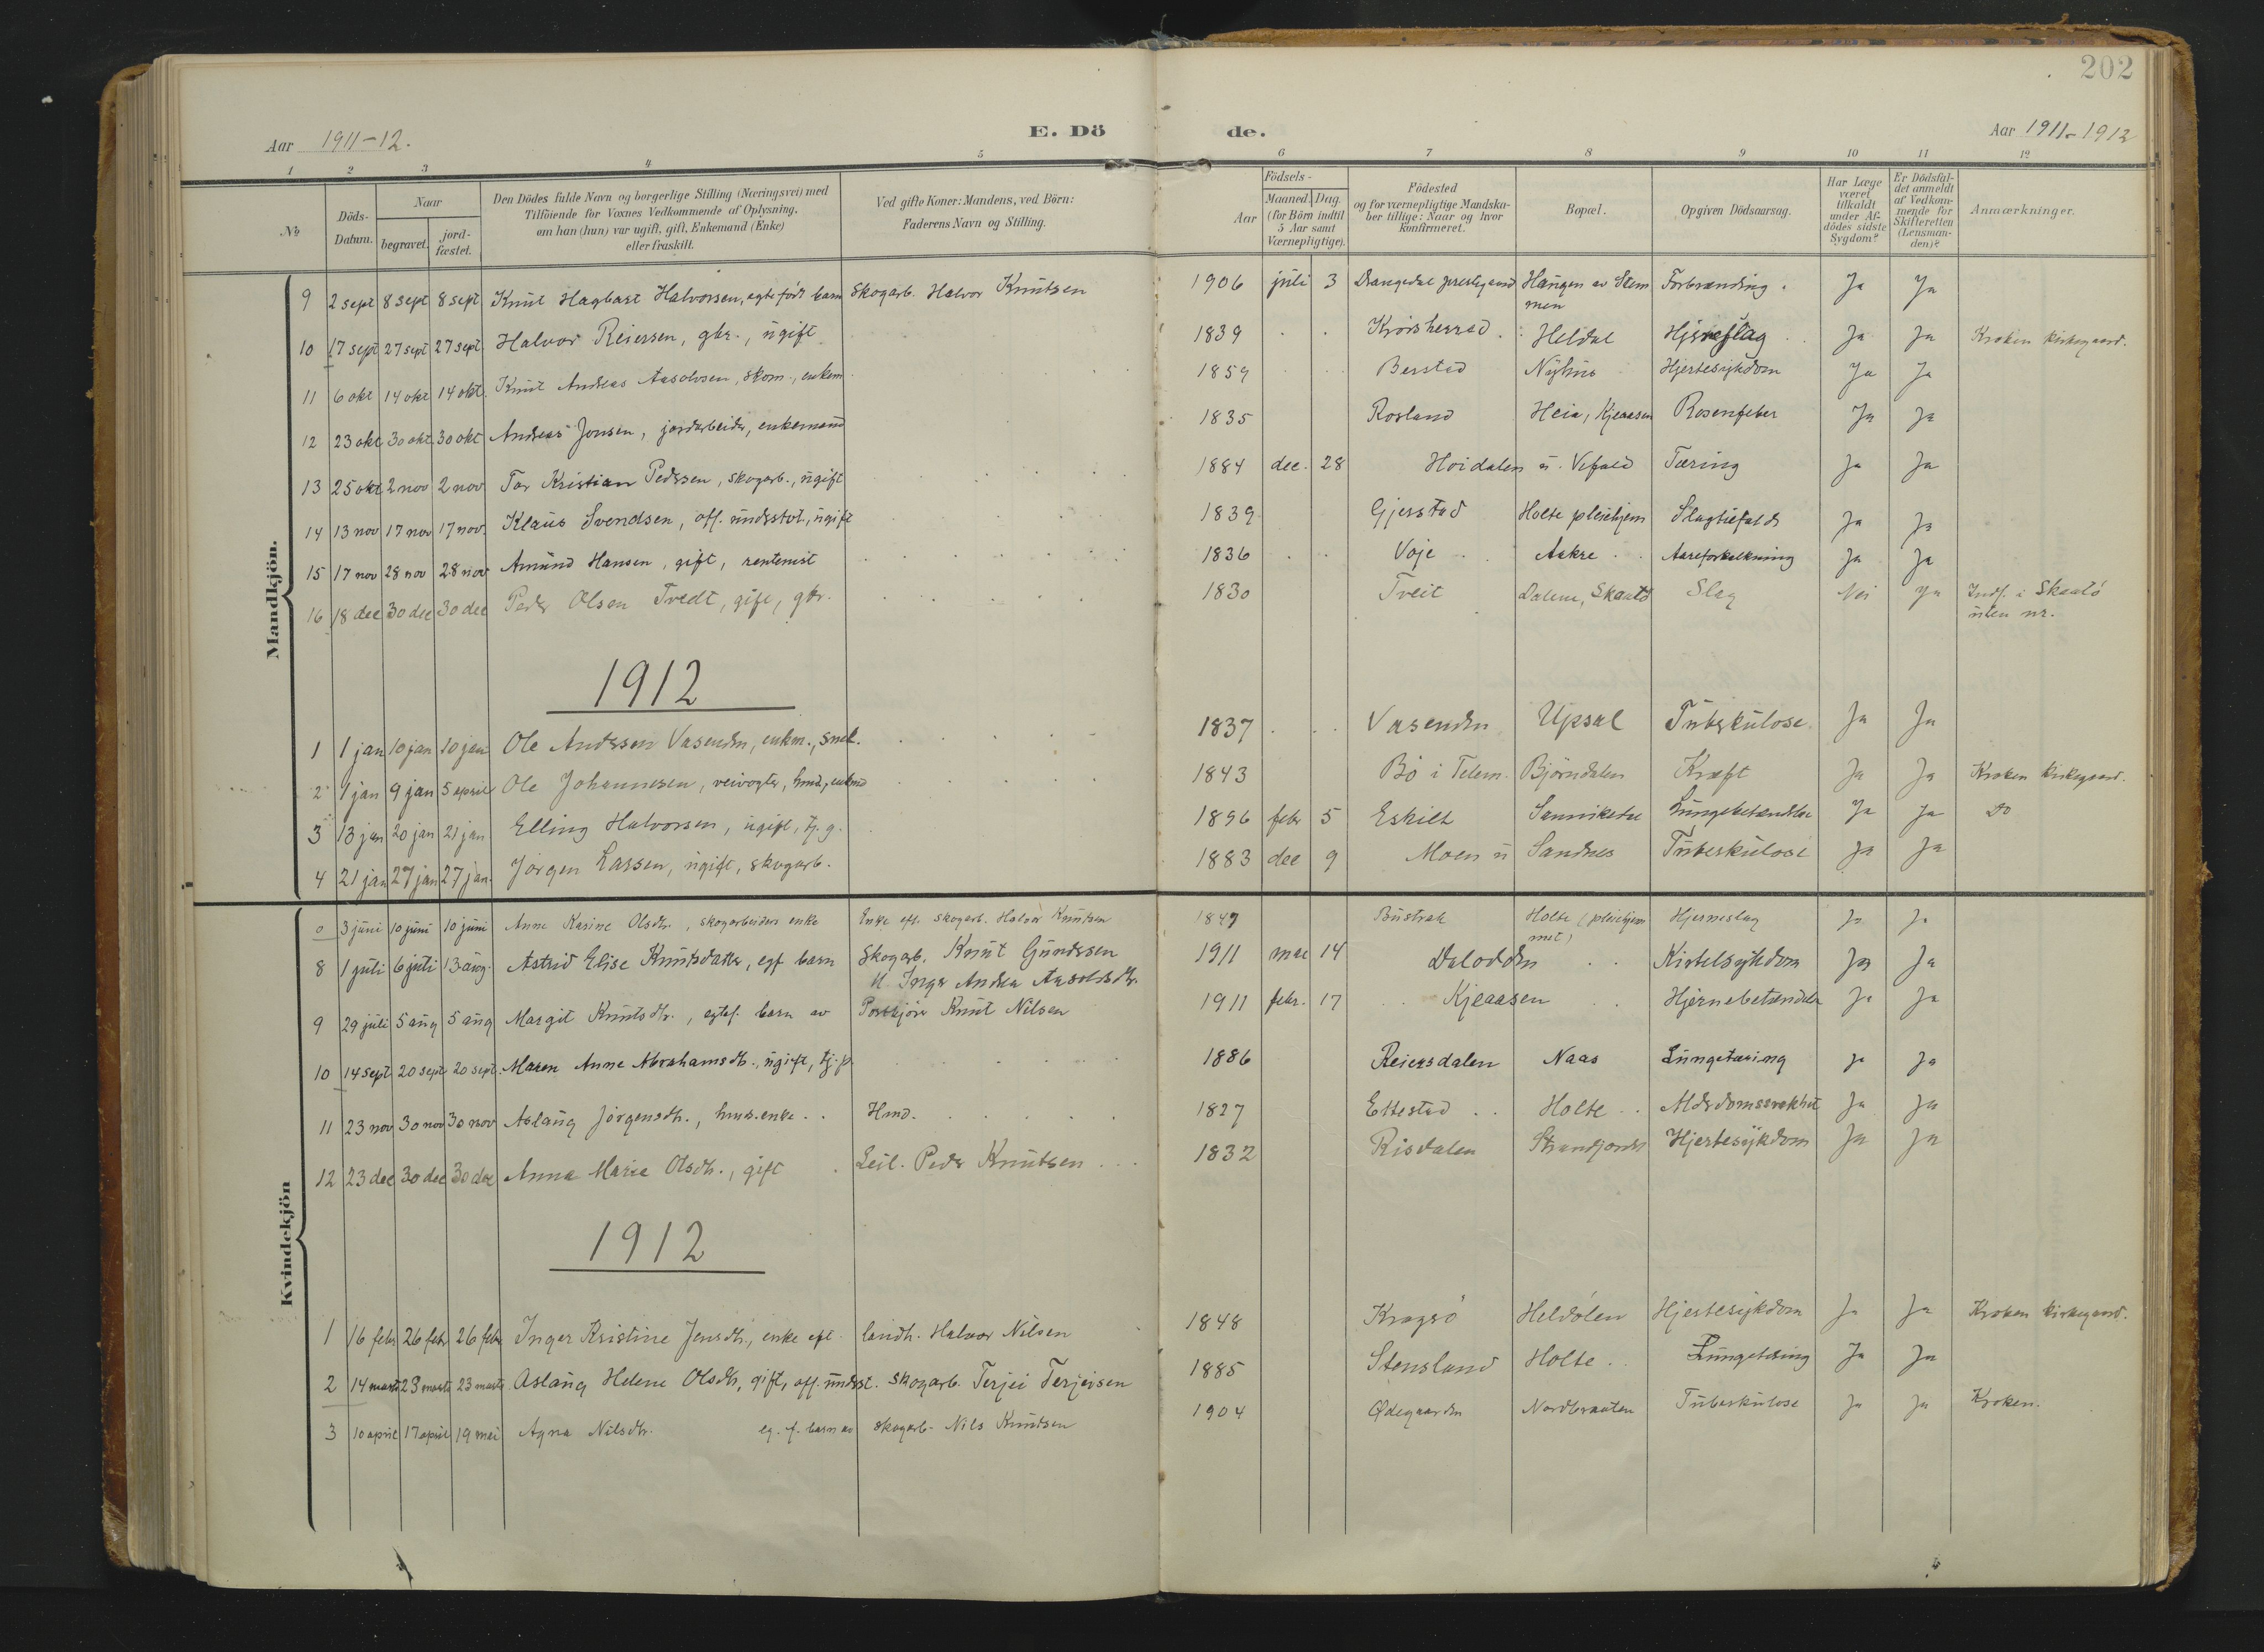 202
Aar 1911-12.
E. Dö
de.
Aar 1911-1912
1 2 3 4 5 6 7 8 9 10 11 12
№
Döds-Datum.
Naar
begravet.
jord-fæstet.
Den Dödes fulde Navn og borgerlige Stilling (Næringsvei) med
Tilföiende for Voxnes Vedkommende af Oplysning,
om han (hun) var ugift, gift, Enkemand (Enke)
eller fraskilt.
Ved gifte Koner: Mandens, ved Börn:
Faderens Navn og Stilling.
Födsels-
Aar
Maaned. Dag.
(for Börn indtil
5 Aar samt
Værnepligtige).
Födested
og for værnepligtige Mandska-
ber tillige: Naar og hvor
konfirmeret.
Bopæl.
Opgiven Dödsaarsag.
Har Læge
været
tilkaldt
under Af-
dödes sidste
Sygdom?
Er Dödsfal-
det anmeldt
af Vedkom-
mende for
Skifteretten
(Lensman-
den)?
Anmærkninger.
Mandkjön.
9 2 sept 8 sept 8 sept Knut Hagbart Halvorsen, egtefödt barn Skogarb. Halvor Knutsen 1906 juli 3 Drangedal Haugen av Stem Forbrænding. Ja Ja
men
10 17 sept 27 sept 27 sept Halvor Reiersen, gbr., ugift 1839 Krødsherred Heldal Hjerneslag Ja Ja Kroken kirkegaard.
11 6 okt 14 okt 14 okt. Knut Andreas Aasolvsen, skom., enkem 1859 Berstad Nyhus Hjertesykdom Ja Ja
12 23 okt 30 okt 30 okt Andreas Jonsen, jordarbeider, enkemand 1835 Rosland Heia, Kjeaasen Rosenfeber Ja Ja
13 25 okt 2 nov 2 nov Tor Kristian Pedersen, skogarb., ugift 1884 dec. 28 Hoidalen u. Vefald Tæring Ja Ja
14 13 nov 17 nov 17 nov. Klaus Svendsen, off. understøt., ugift 1839 Gjerstad Holte pleiehjem Slagtilfælde Ja Ja
15 17 nov 28 nov 28 nov Amund Hansen, gift, rentenist 1836 Voje Aakre Aareforkalkning Ja Ja
16 18 dec 30 dec 30 dec Peder Olsen Tvedt, gift, gbr. 1830 Tveit Dalene, Skaatø Slag Nei Ja Indf. i Skaatö
uten nr.
1912
1 1 jan 10 jan 10 jan Ole Andersen Vasenden, enkm., sned. 1837 Vasenden Upsal Tuberkulose Ja Ja
2 1 jan 9 jan 5 april Ole Johannesen, veivogter, hmd, enkmd 1843 Bö i Telem. Björndalen Kræft Ja Ja Kroken kirkegaard.
3 13 jan 20 jan 21 jan Elling Halvorsen, ugift, tj.g. 1896 febr 5 Eskilt Sannikedal Lungebetændelse Ja Ja Do
4 21 jan 27 jan 27 jan. Jörgen Larsen, ugift, skogarb. 1883 dec 9 Moen u Sandnes Tuberkulose Ja Ja
Kvindekjön
0 3 juni 10 juni 10 juni Anne Karine Olsdtr., skogarbeiders enke Enke eft. skogarb. Halvor Knutsen 1847 Bustrak Holte (pleiehjem Hjerneslag Ja Ja
met)
8 1 juli 6 juli 13 aug. Astrid Elise Knutsdatter, egf barn Skogarb. Knut Gundersen 1911 mai 14 Dalodden Kirtelsykdom Ja Ja
u. Inger Andrea Aasolvsdtr.
9 29 juli 5 aug 5 aug Margit Knutsdtr., egtef. barn av Postkjörer Knut Nilsen 1911 febr. 17 Kjeaasen Hjernebetændelse Ja Ja
10 14 sept 20 sept 20 sept. Maren Anne Abrahamsdtr., ugift, tj.p. 1886 Reiersdalen Naas Lungetæring Ja Ja
11 23 nov 30 nov 30 nov Aslaug Jörgensdtr., hmds.enke Hmd. 1827 Ettestad Holte Alderdomssvakhet Ja Ja
12 23 dec 30 dec 30 dec Anna Marie Olsdtr., gift Leil. Peder Knutsen 1832 Risdalen Strandjordet Hjertesykdom Ja Ja
1912
1 16 febr 26 febr 26 febr Inger Kristine Jensdtr., enke eft. landh. Halvor Nilsen 1848 Kragerö Heldölen Hjertesykdom Ja Ja Kroken kirkegaard.
2 14 marts 23 marts 23 marts Aslaug Helene Olsdtr, gift, off. underst. skogarb. Terjei Terjeisen 1885 Stensland Holte Lungetæring Ja Ja
3 10 april 17 april 19 mai Agna Nilsdtr. eg. f. barn av skogarb. Nils Knudsen 1904 Ødegaarden Nordbraaten Tuberkulose Ja Ja Kroken.